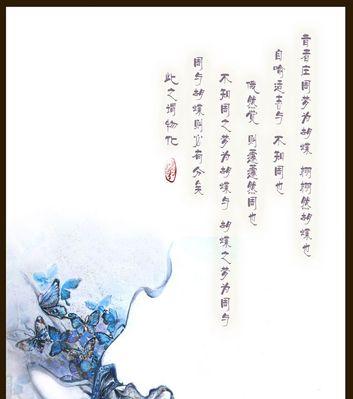 昔者庄周梦为胡蝶 栩栩然胡蝶也
自喻适志与 不知周也
俄然觉 则蘧蘧然周也
不知周之梦为胡蝶与 胡蝶之梦为周与
周与胡蝶则必有分矣
此之谓物化